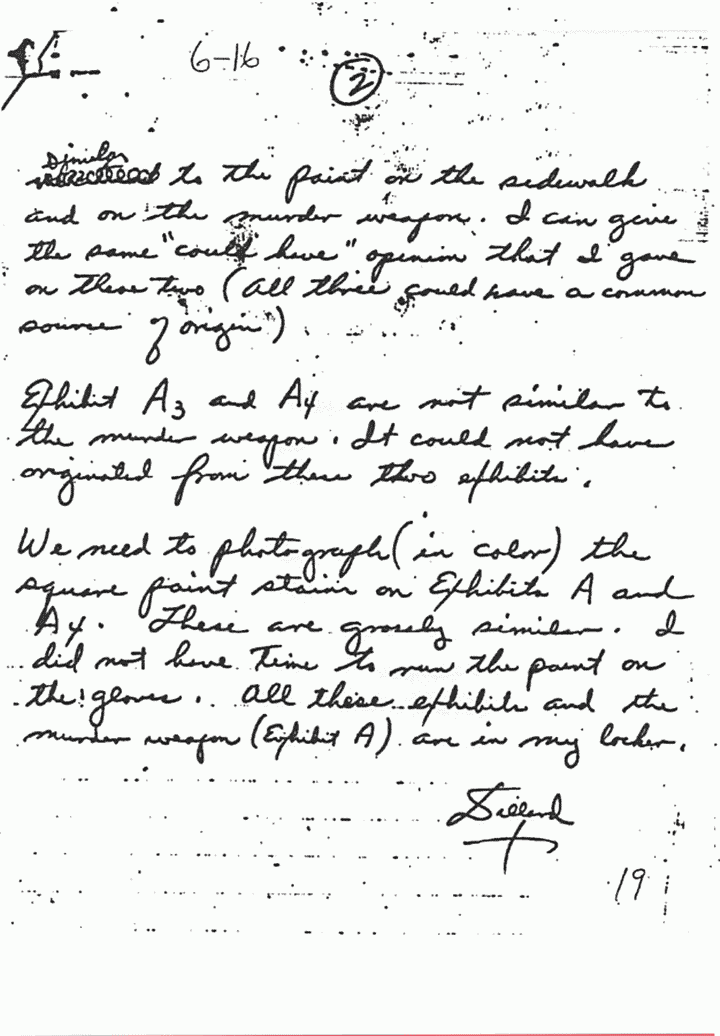 6-16
2
similar
to the paint on the sidewalk
and on the murder weapon. I can give
the same "could have" opinion that I gave
on these two (All three could have a common
source of origin)
Exhibit A3 and A4 are not similar to
the murder weapon. It could not have
originated from these two exhibits.
We need to photograph (in color) the
square paint stains on Exhibits A and
A4. These are grossly similar. I
did not have Time to run the paint on
the gloves. All these exhibits and the
murder weapon (Exhibit A) are in my locker.
19